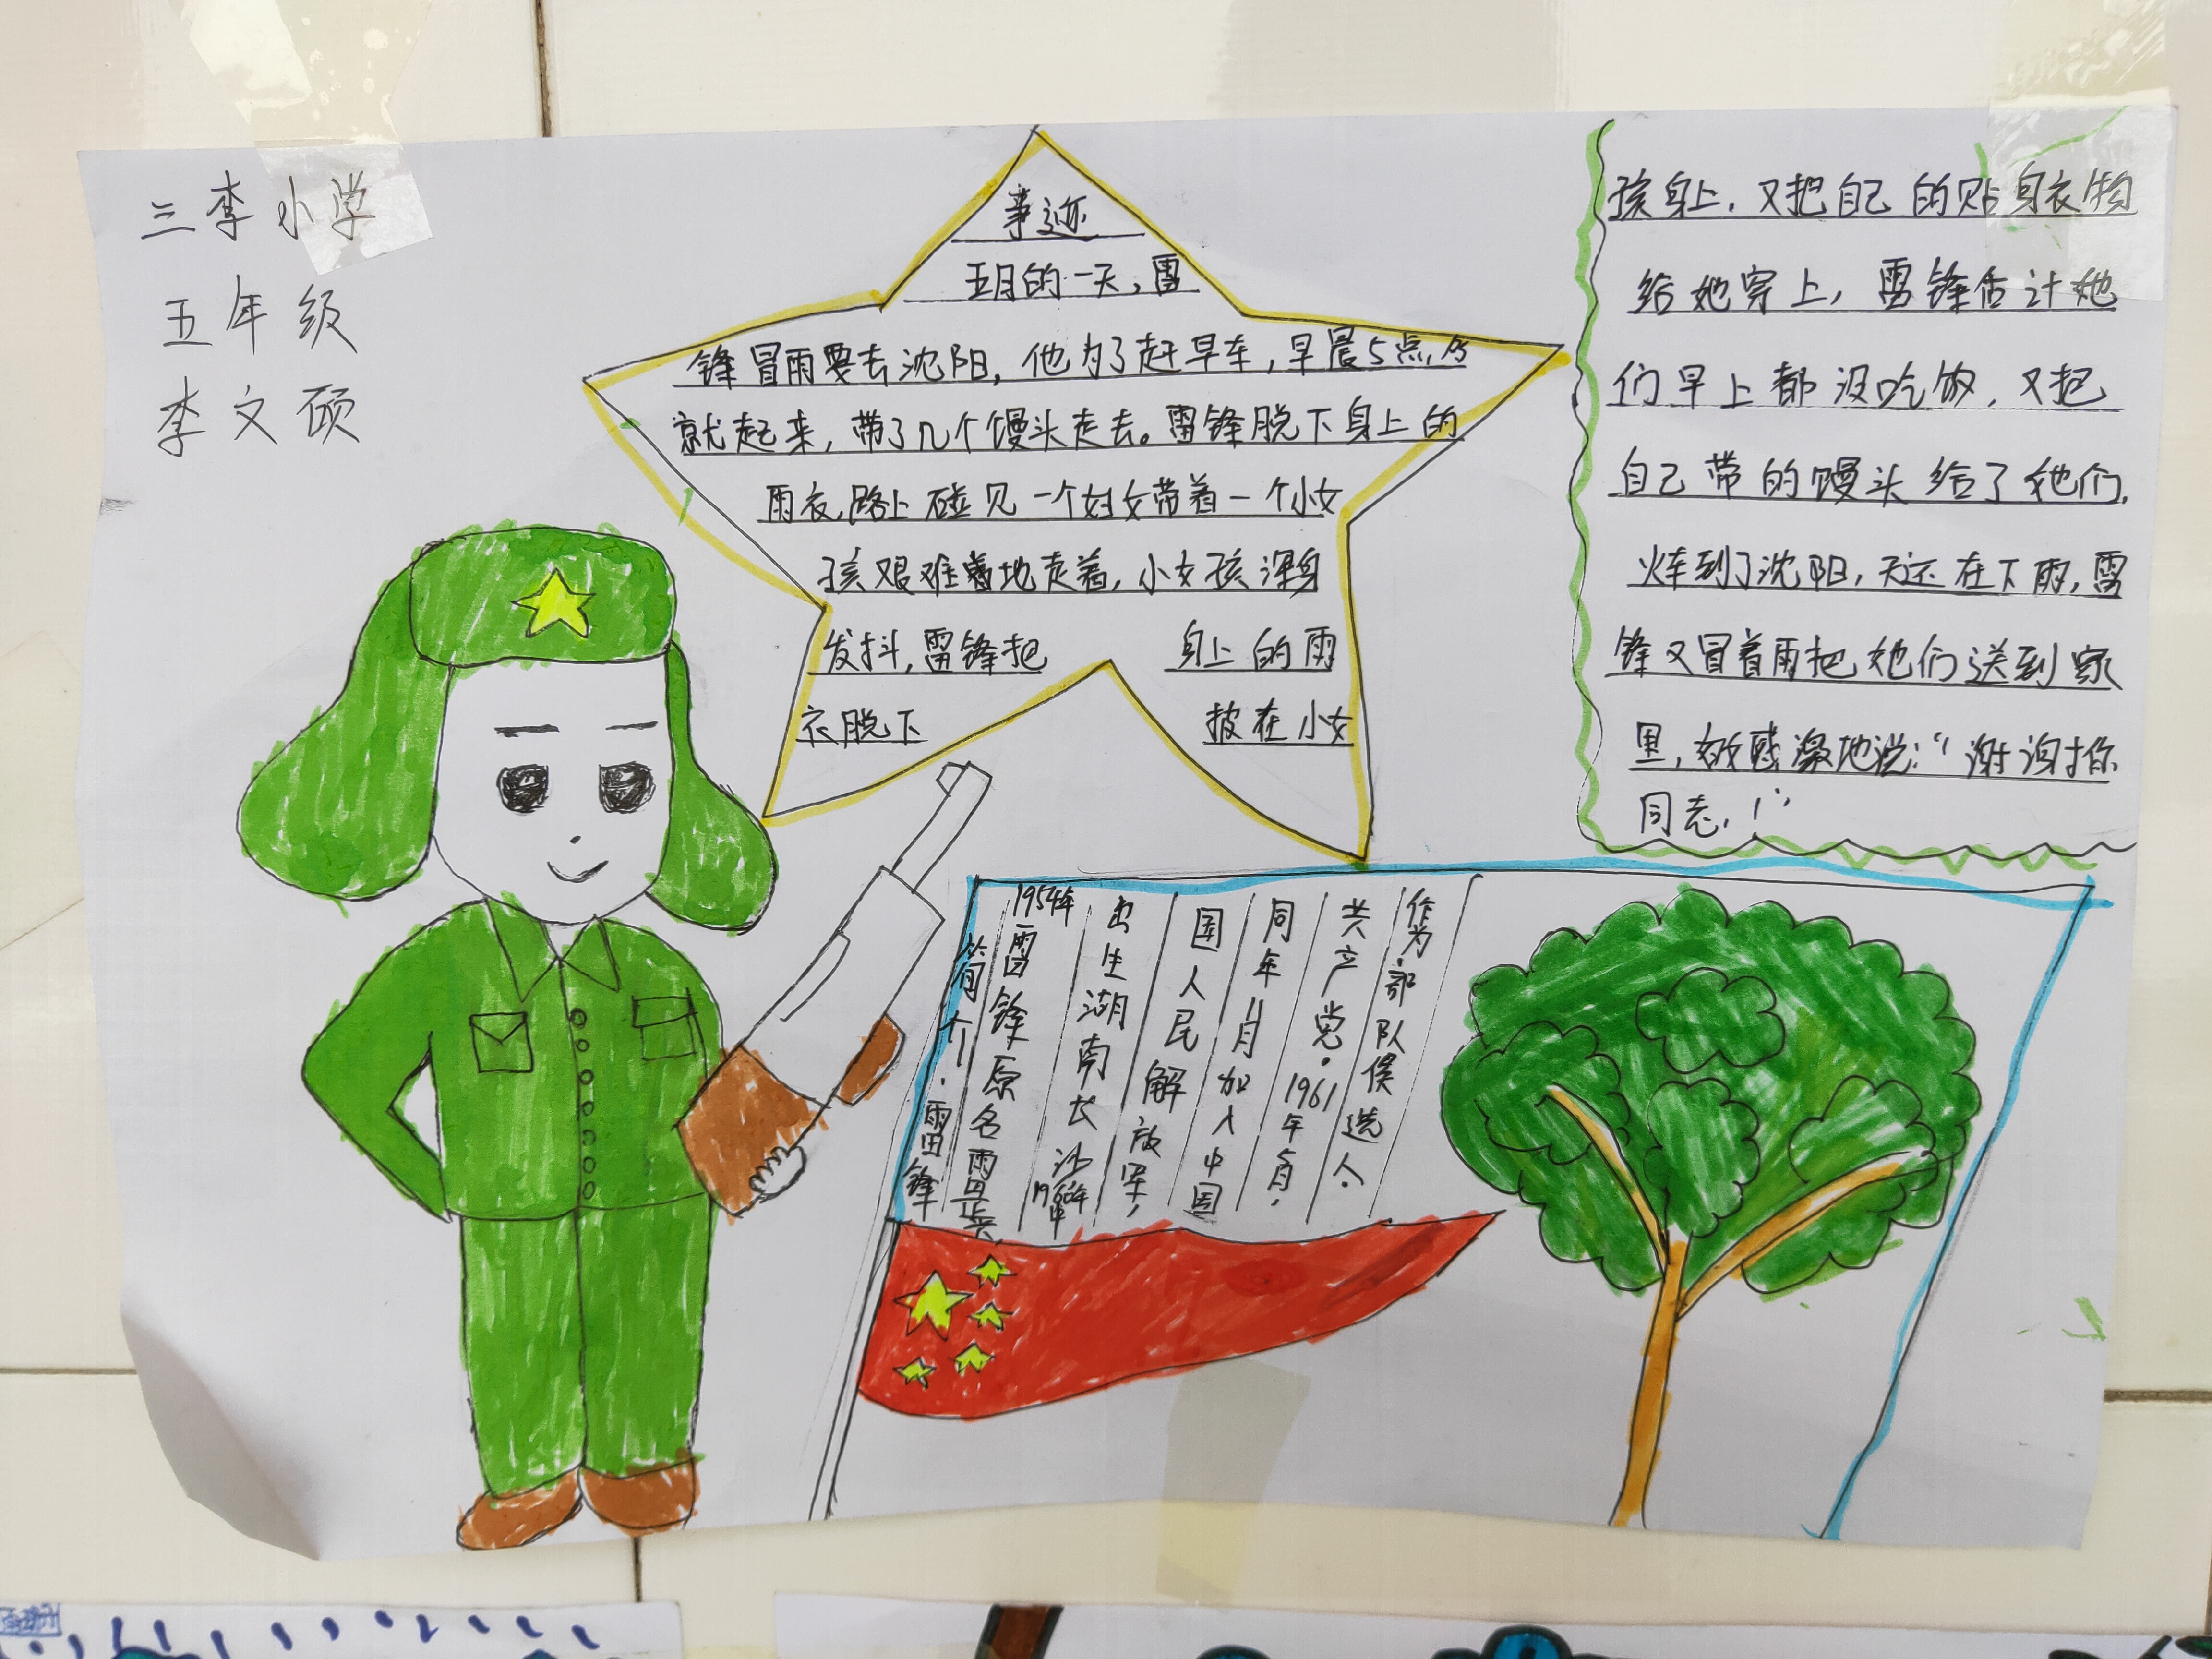 三李小学
五年级
李文硕
事迹
五月的一天,雷
锋冒雨要去沈阳,他为了赶早车,早晨5点
就起来,带了几个馒头走去。雷锋脱下身上的
雨衣,路上碰见一个妇女带着一个小女
孩艰难着地走着,小女孩浑身
发抖,雷锋把 身上的雨
衣脱下 披在小女
孩身上,又把自己的贴身衣物
给她穿上,雷锋估计她
们早上都没吃饭,又把
自己带的馒头给了她们,
火车到了沈阳,天还在下雨,雷
锋又冒着雨把她们送到家
里,感激地说:“谢谢你
同志,!”
简介.雷锋
雷锋原名雷正兴
1954年
出生湖南长沙
1960年
国人民解放军,
同年11月加入中国
共产党。1961年
作为部队候选人.